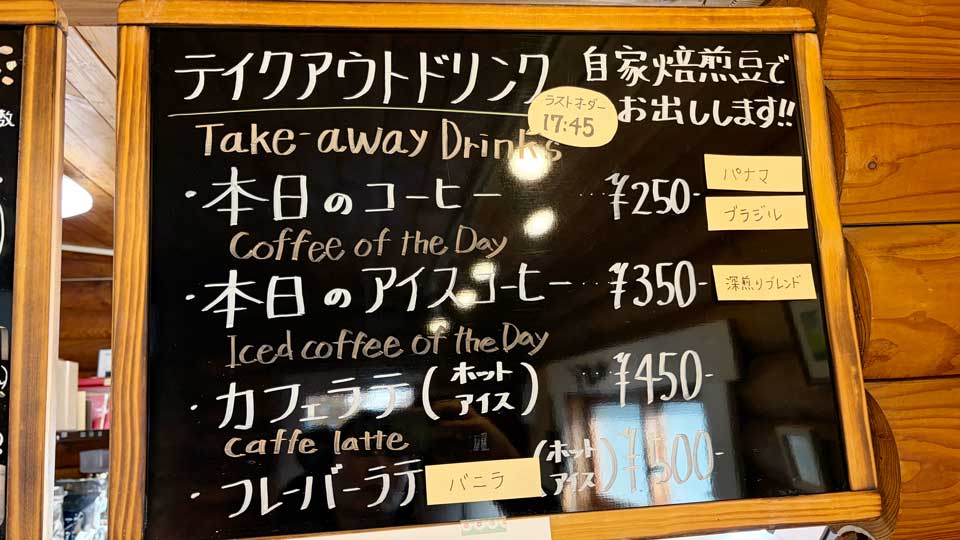 テイクアウトドリンク
自家焙煎豆で
お出しします!!
ラストオーダー
17:45
Take-away Drinks
・本日のコーヒー ・・・¥250-
パナマ
ブラジル
Coffee of the Day
・本日のアイスコーヒー・・・¥350-
深煎りブレンド
Iced coffee of the Day
・カフェラテ(ホット アイス) ・・・¥450-
caffe latte
・フレーバーラテ バニラ (ホット アイス) ¥500-